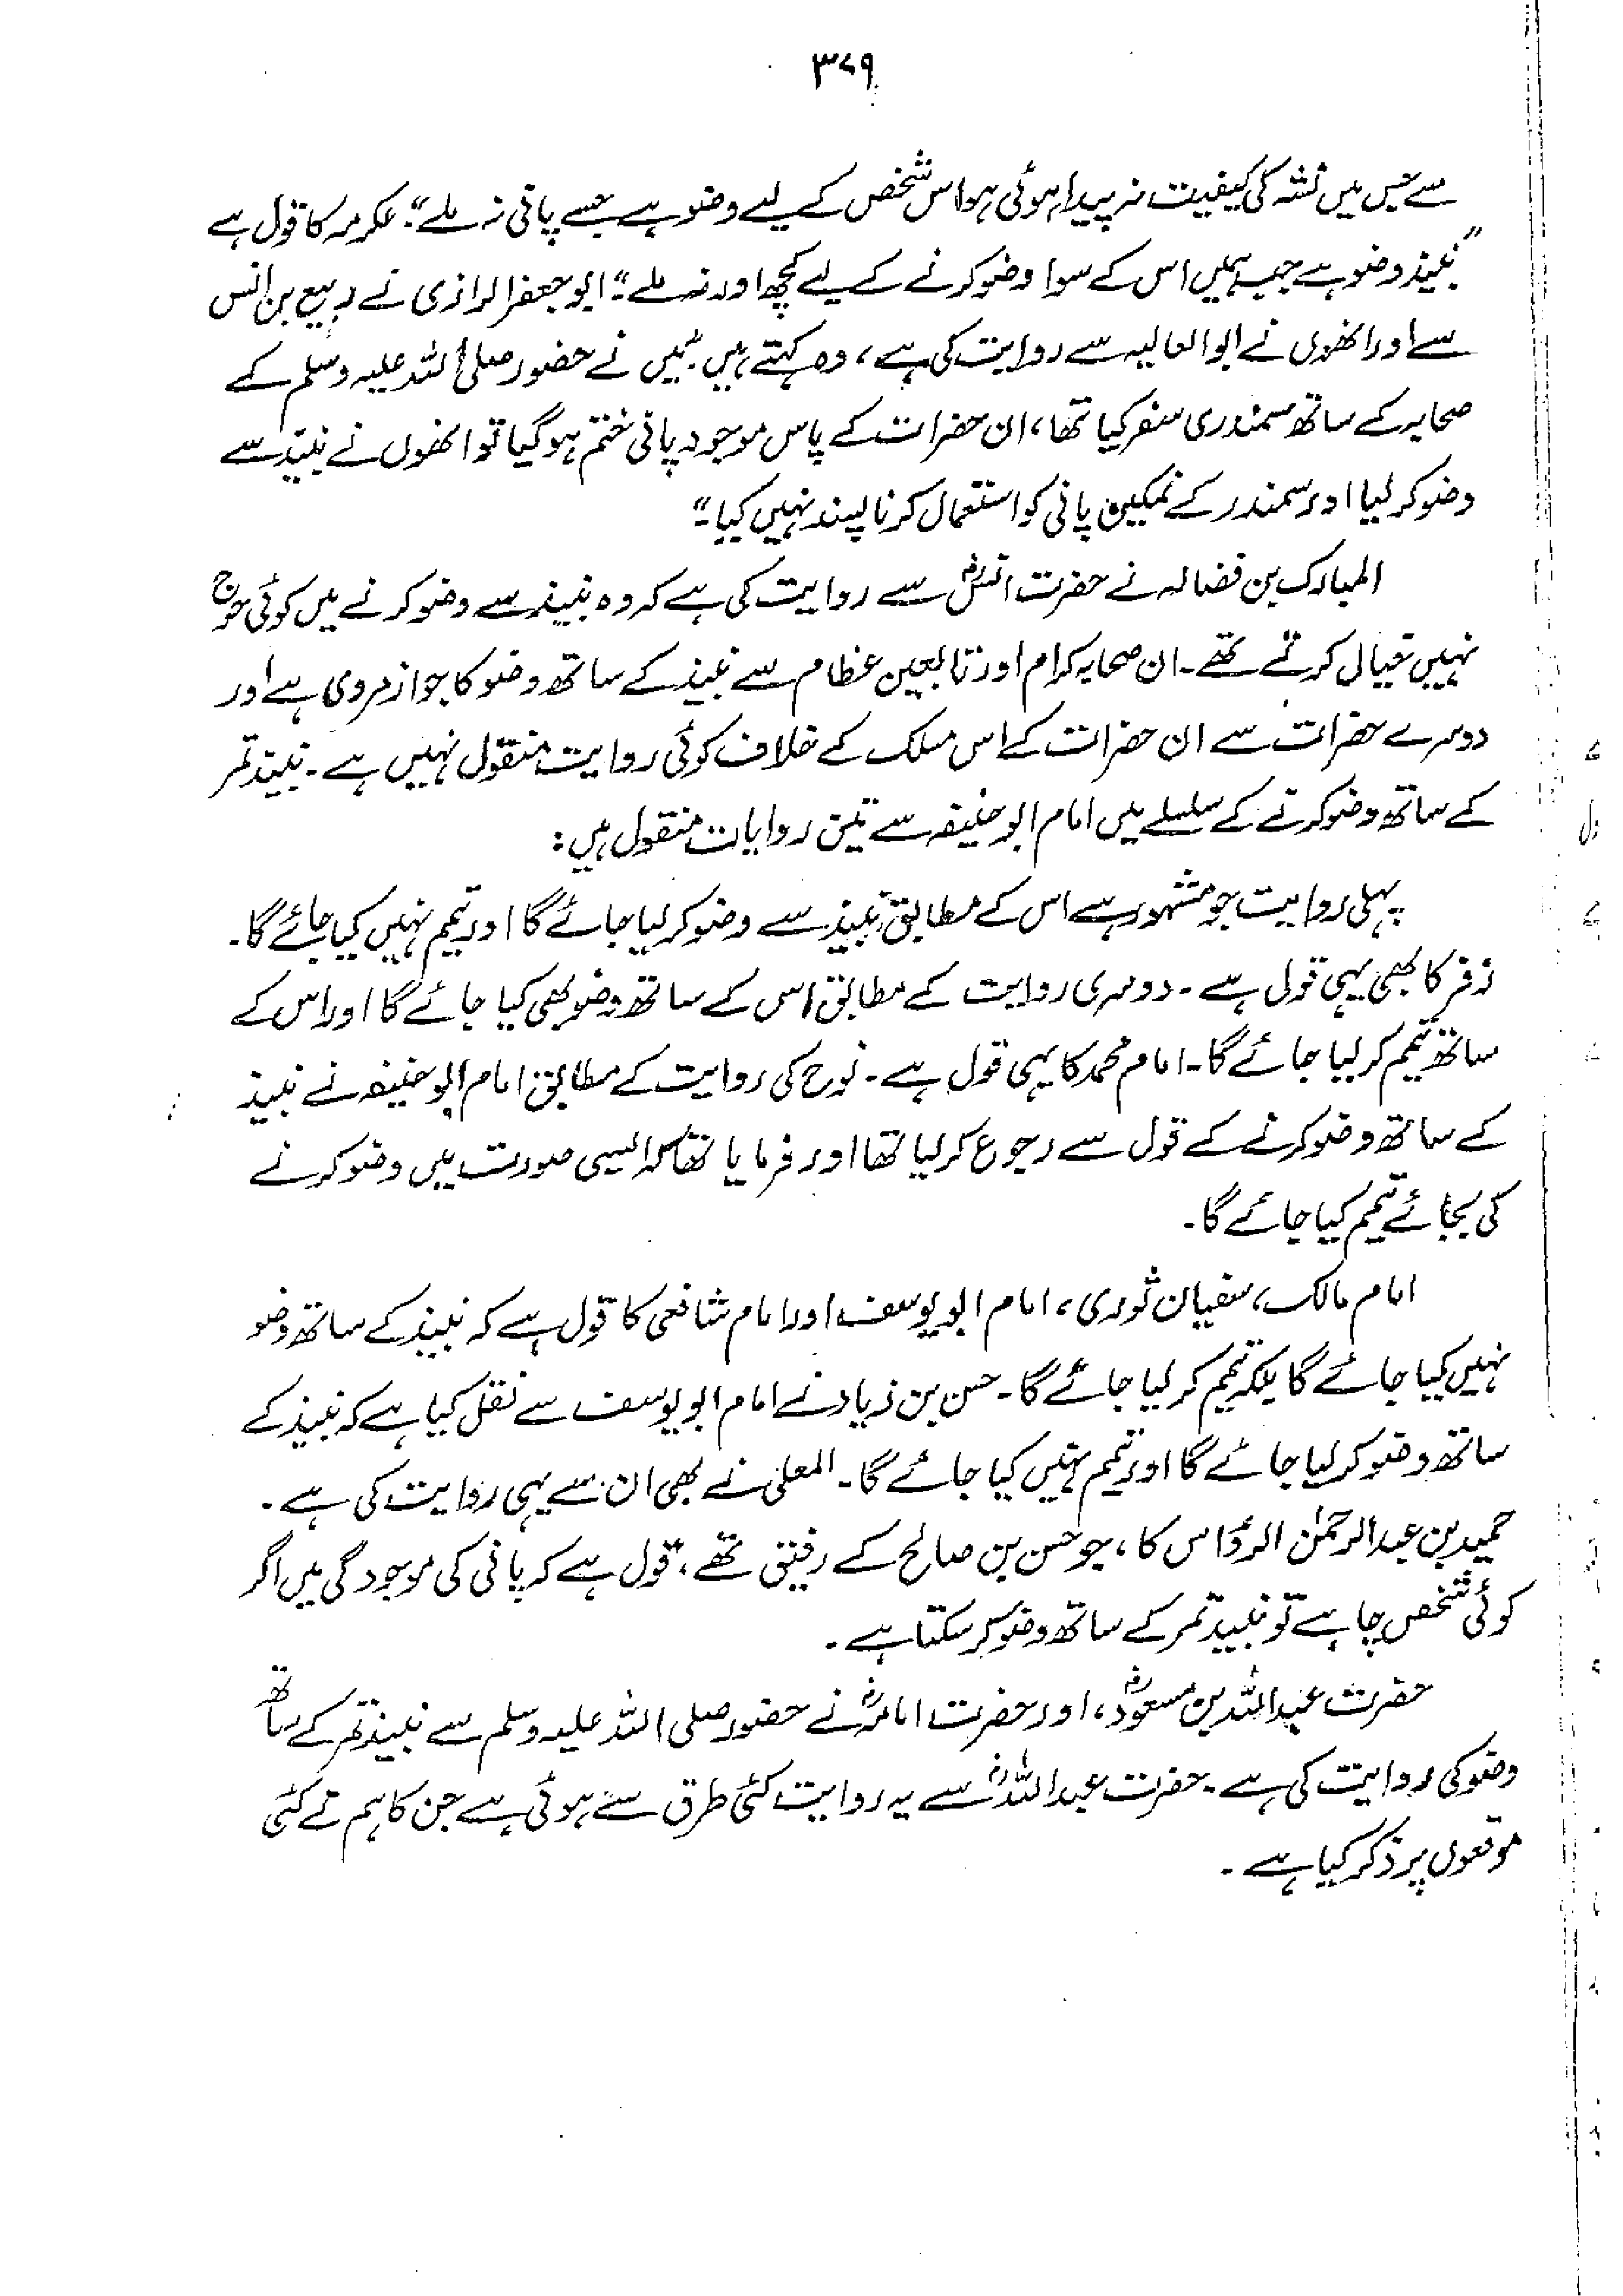 ۳۷۹
سے جس میں نشہ کی کیفیت نہ پیدا ہوئی ہو اس شخص کے لیے وضو ہے جسے پانی نہ ملے"۔ عکرمہ کا قول ہے
"نبیذ وضو ہے جب ہمیں اس کے سوا وضو کرنے کے لیے کچھ اور نہ ملے"۔ ابوجعفر الرازی نے ربیع بن انس
سے اور انھوں نے ابوالعالیہ سے روایت کی ہے، وہ کہتے ہیں "میں نے حضور صلی اللہ علیہ وسلم کے
صحابہ کے ساتھ سمندری سفر کیا تھا، ان حضرات کے پاس موجود پانی ختم ہو گیا تو انھوں نے نبیذ سے
وضو کر لیا اور سمندر کے نمکین پانی کو استعمال کرنا پسند نہیں کیا۔"
المبارک بن فضالہ نے حضرت انسؓ سے روایت کی ہے کہ وہ نبیذ سے وضو کرنے میں کوئی حرج
نہیں خیال کرتے تھے۔ ان صحابہ کرام اور تابعین عظام سے نبیذ کے ساتھ وضو کا جواز مروی ہے اور
دوسرے حضرات سے ان حضرات کے اس مسلک کے خلاف کوئی روایت منقول نہیں ہے۔ نبیذ تمر
کے ساتھ وضو کرنے کے سلسلے میں امام ابوحنیفہ سے تین روایات منقول ہیں:
پہلی روایت جو مشہور ہے اس کے مطابق نبیذ سے وضو کر لیا جائے گا اور تیمم نہیں کیا جائے گا۔
زفر کا بھی یہی قول ہے۔ دوسری روایت کے مطابق اس کے ساتھ وضو بھی کیا جائے گا اور اس کے
ساتھ تیمم کر لیا جائے گا۔ امام محمد کا یہی قول ہے۔ نوح کی روایت کے مطابق امام ابوحنیفہ نے نبیذ
کے ساتھ وضو کرنے کے قول سے رجوع کر لیا تھا اور فرمایا تھا کہ ایسی صورت میں وضو کرنے
کی بجائے تیمم کیا جائے گا۔
امام مالک، سفیان ثوری، امام ابویوسف اور امام شافعی کا قول ہے کہ نبیذ کے ساتھ وضو
نہیں کیا جائے گا بلکہ تیمم کر لیا جائے گا۔ حسن بن زیاد نے امام ابویوسف سے نقل کیا ہے کہ نبیذ کے
ساتھ وضو کر لیا جائے گا اور تیمم نہیں کیا جائے گا۔ المعلیٰ نے بھی ان سے یہی روایت کی ہے۔
حمید بن عبدالرحمٰن الرؤاس کا، جو حسن بن صالح کے رفیق تھے، قول ہے کہ پانی کی موجودگی میں اگر
کوئی شخص چاہے تو نبیذ تمر کے ساتھ وضو کر سکتا ہے۔
حضرت عبداللہ بن مسعودؓ، اور حضرت امامہؓ نے حضور صلی اللہ علیہ وسلم سے نبیذ تمر کے ساتھ
وضو کی روایت کی ہے۔ حضرت عبداللہؓ سے یہ روایت کئی طرق سے ہوئی ہے جن کا ہم نے کئی
موقعوں پر ذکر کیا ہے۔